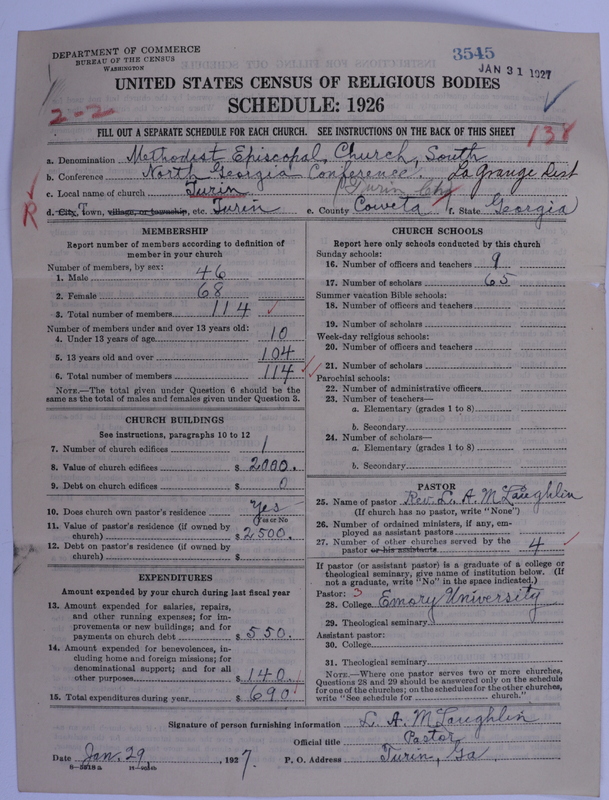 DEPARTMENT OF COMMERCE
BUREAU OF THE CENSUS
WASHINGTON
3545
JAN 31 1927
UNITED STATES CENSUS OF RELIGIOUS BODIES
SCHEDULE: 1926
2-2
138
FILL OUT A SEPARATE SCHEDULE FOR EACH CHURCH. SEE INSTRUCTIONS ON THE BACK OF THIS SHEET
a. Denomination Methodist Episcopal Church, South
b. Conference North Georgia Conference. La Grange Dist
c. Local name of church Turin (Turin Chg
R
d. City, Town, village, or township, etc. Turin e. County Coweta f. State Georgia
MEMBERSHIP
Report number of members according to definition of
member in your church
Number of members, by sex:
1. Male 46
2. Female 68
3. Total number of members 114
Number of members under and over 13 years old:
4. Under 13 years of age 10
5. 13 years old and over 104
6. Total number of members 114
NOTE.—The total given under Question 6 should be the
same as the total of males and females given under Question 3.
CHURCH BUILDINGS
See instructions, paragraphs 10 to 12
7. Number of church edifices 1
8. Value of church edifices $ 2000.
9. Debt on church edifices $ 0
10. Does church own pastor's residence Yes
(Yes or No
11. Value of pastor's residence (if owned by
church) $ 2500.
12. Debt on pastor's residence (if owned by
church) $
EXPENDITURES
Amount expended by your church during last fiscal year
13. Amount expended for salaries, repairs,
and other running expenses; for im-
provements or new buildings; and for
payments on church debt $ 550.
14. Amount expended for benevolences, in-
cluding home and foreign missions; for
denominational support; and for all
other purposes $ 140.
15. Total expenditures during year $ 690
CHURCH SCHOOLS
Report here only schools conducted by this church
Sunday schools:
16. Number of officers and teachers 9
17. Number of scholars 65
Summer vacation Bible schools:
18. Number of officers and teachers
19. Number of scholars
Week-day religious schools:
20. Number of officers and teachers
21. Number of scholars
Parochial schools:
22. Number of administrative officers
23. Number of teachers—
a. Elementary (grades 1 to 8)
b. Secondary
24. Number of scholars—
a. Elementary (grades 1 to 8)
b. Secondary
PASTOR
25. Name of pastor Rev. L. A. McLaughlin
(If church has no pastor, write "None")
26. Number of ordained ministers, if any, em-
ployed as assistant pastors
27. Number of other churches served by the
pastor or his assistants 4
If pastor (or assistant pastor) is a graduate of a college or
theological seminary, give name of institution below. (If
not a graduate, write "No" in the space indicated.)
Pastor: 3
28. College Emory University
29. Theological seminary
Assistant pastor:
30. College
31. Theological seminary
NOTE.—Where one pastor serves two or more churches,
Questions 28 and 29 should be answered only on the schedule
for one of the churches; on the schedules for the other churches,
write "See schedule for church."
Signature of person furnishing information L. A. McLaughlin
Official title Pastor
Date Jan. 29, 1927. P. O. Address Turin, Ga